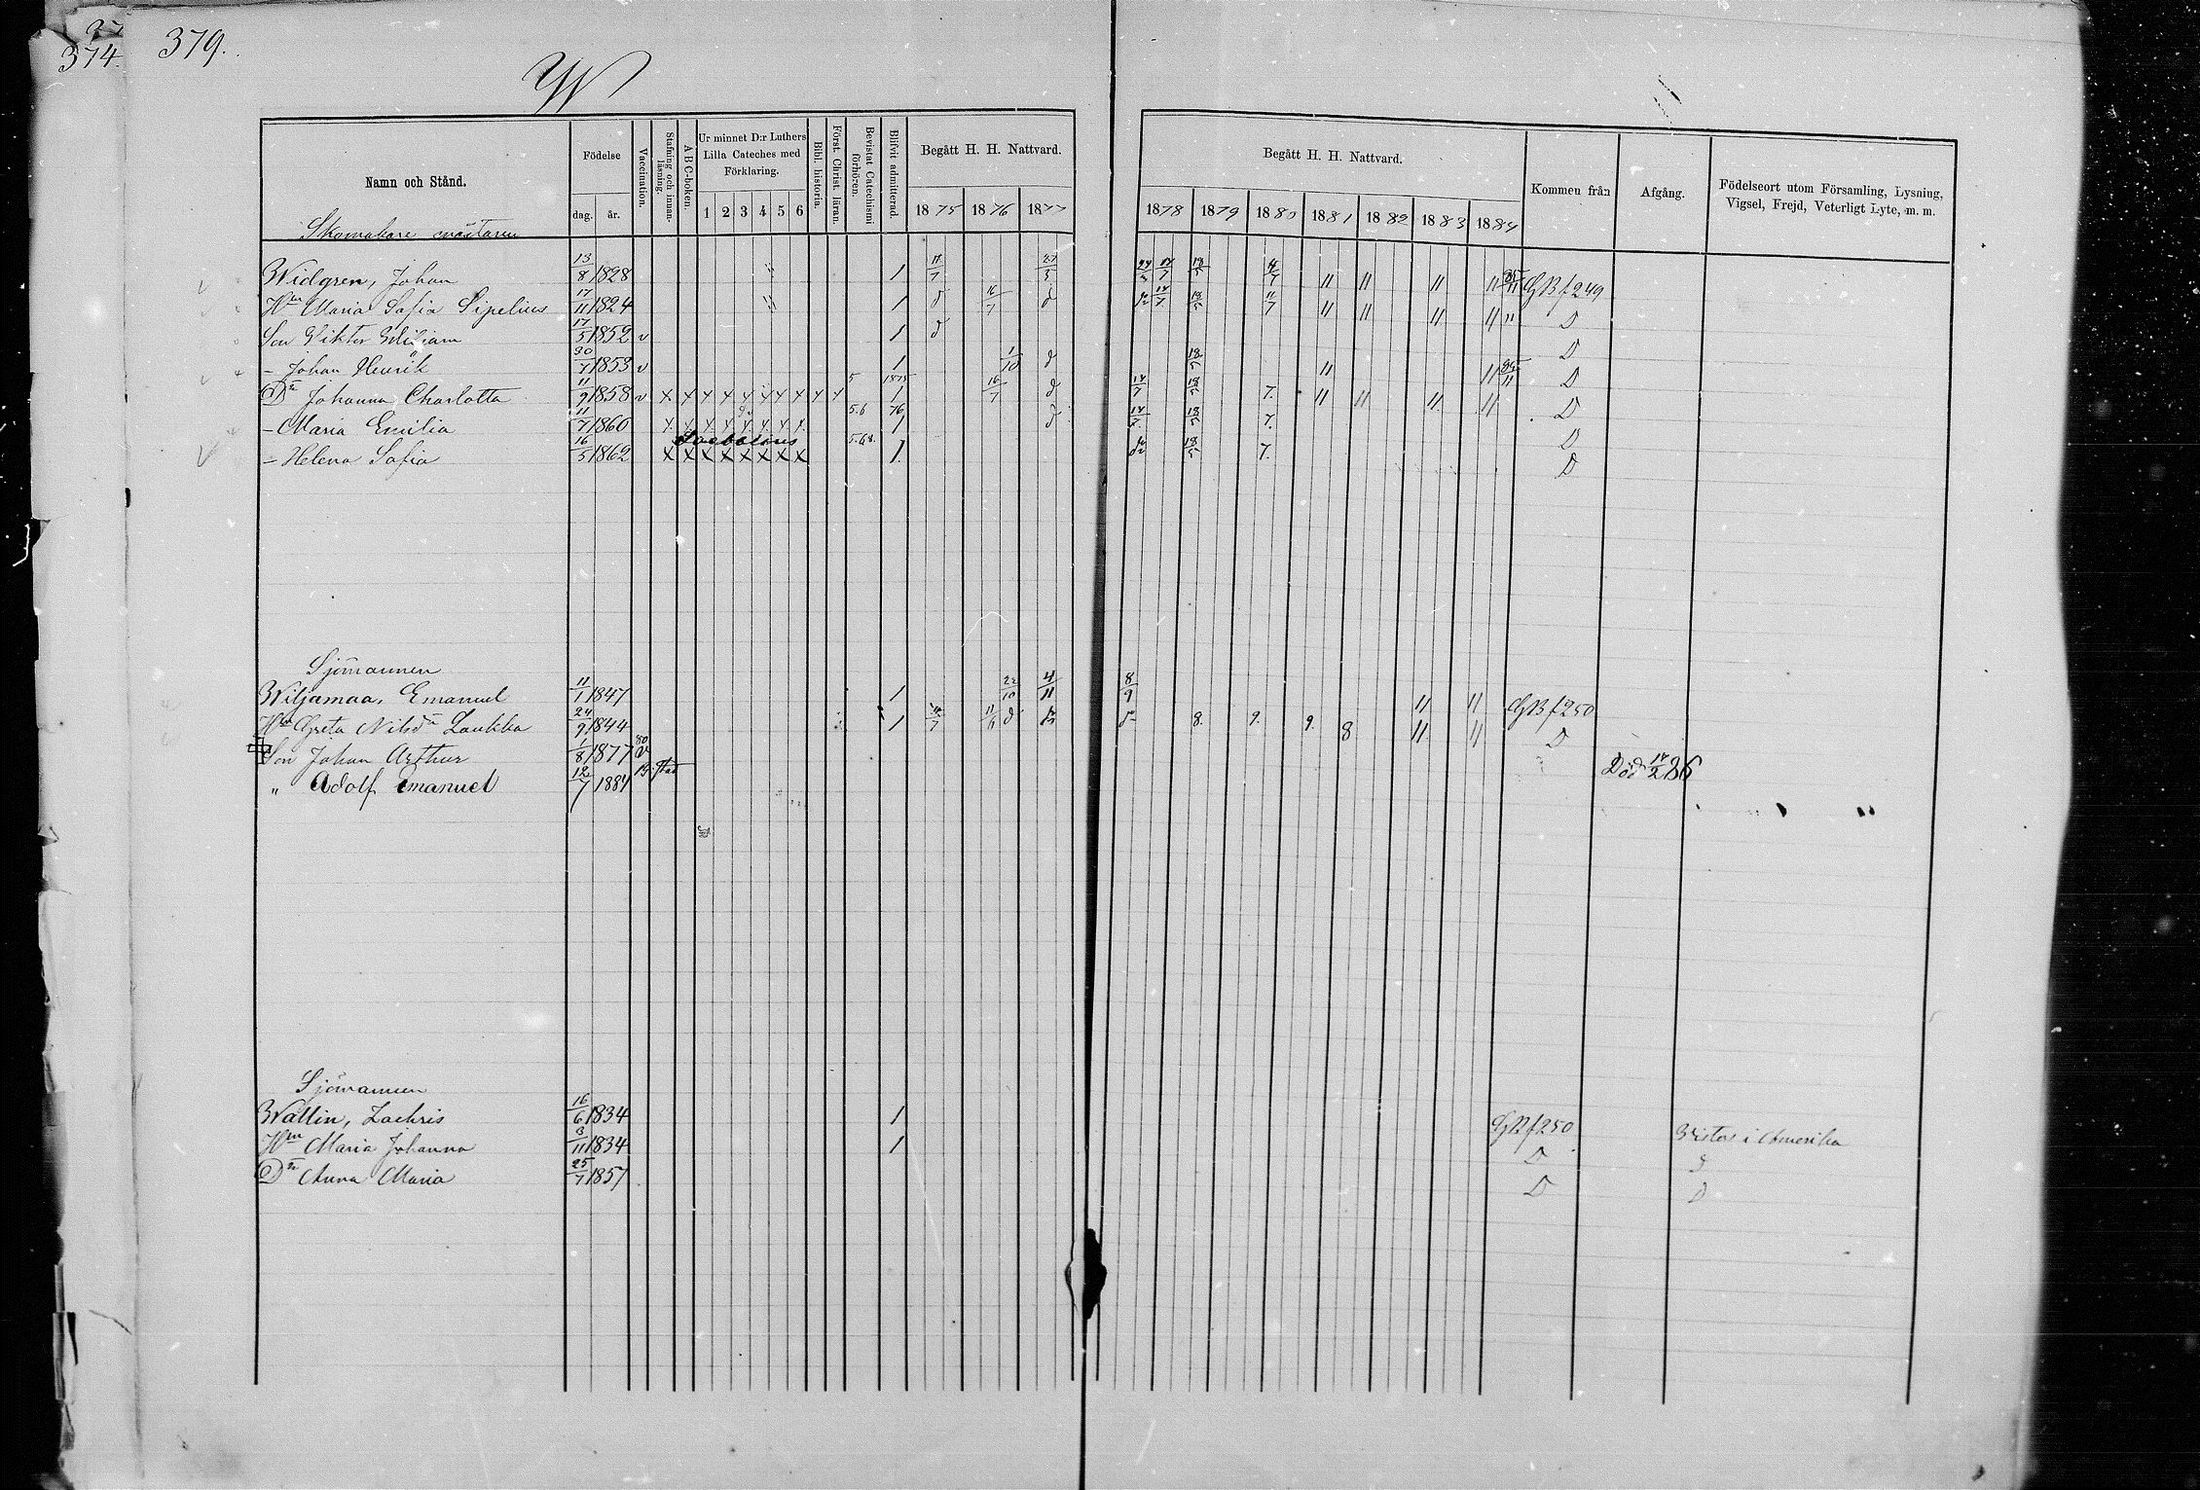 374. 379.
W
Namn och Stånd. Födelse dag. år. Vaccination. Stafning och innanläsning. A B C-boken. Ur minnet D:r Luthers Lilla Cateches med Förklaring. 1 2 3 4 5 6 Bibl. historia. Först. Christ. läran. Bevistat Catechismi förhören. Blifvit admitterad. Begått H. H. Nattvard. 1875 1876 1877
Begått H. H. Nattvard. 1878 1879 1880 1881 1882 1883 1884 Kommen från Afgång. Födelseort utom Församling, Lysning, Vigsel, Frejd, Veterligt Lyte, m. m.
Skomakare mästaren
Widgren, Johan 13/8 1828 1 11/7 27/5 18/5 11/7 11 11 11 11 GB f 249
Hn Maria Sofia Sipelius 17/11 1824 1 d 16/7 d 18/5 11/7 11 11 11 11 D
Son Viktor Wiljam 17/5 1852 v 1 d D
– Johan Henrik 30/7 1853 v 1 1/10 d 18/5 11 11 D
Dr Johanna Charlotta 11/9 1858 v x x x x x x x x x x 5 1875 1 16/7 d 14/7 18/5 7. 11 11 11 11 D
– Maria Emilia 11/7 1860 x x x x x x x x 5.6 76 1 d 14/7 18/5 7. D
– Helena Sofia 16/5 1862 x x x x x x x x 5.6.8. 1 18/5 7. D
Sjömannen
Wiljamaa, Emanuel 11/1 1847 1 22/10 4/11 8/9 11 11 GB f 250
Hn Greta Nilsdr Laukka 24/9 1844 1 11/11 d 8. 9. 9. 8 11 11 D
Son Johan Arthur 1/8 1877 80 v Död 14/2 86
" Adolf Emanuel 12/7 1884
Sjömannen
Wallin, Zachris 16/6 1834 1 GB f 250 Vistas i Amerika
Hn Maria Johanna 3/11 1834 1 D D
Dr Anna Maria 25/7 1857 D D